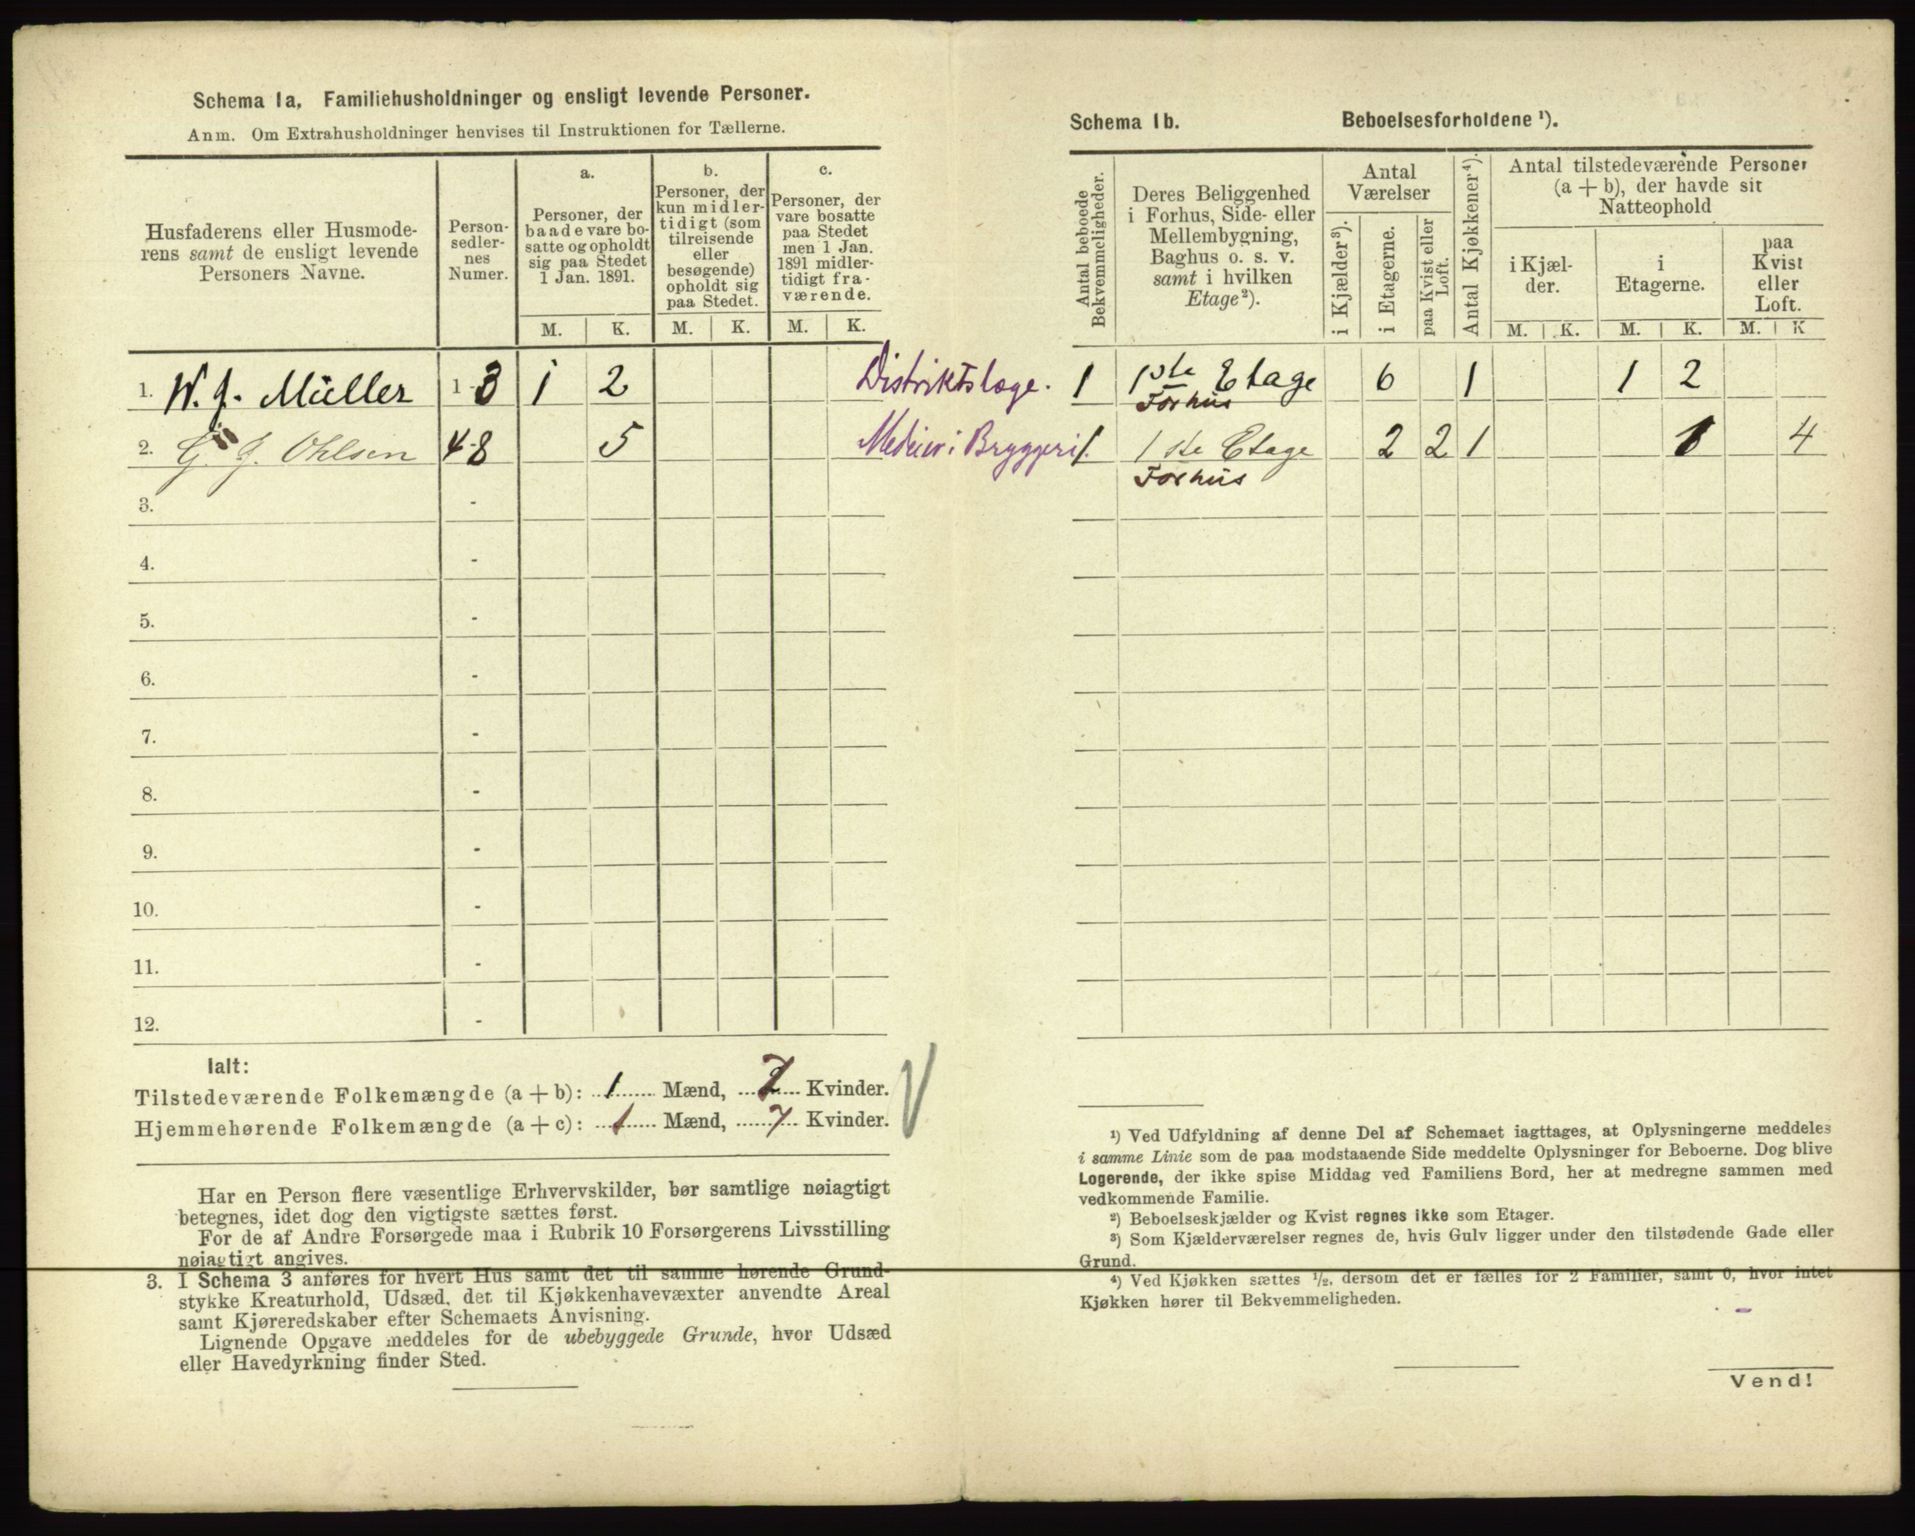 Schema 1a. Familiehusholdninger og ensligt levende Personer.
Anm. Om Extrahusholdninger henvises til Instruktionen for Tællerne.
Husfaderens eller Husmode-
rens samt de ensligt levende
Personers Navne.
Person-
sedler-
nes
Numer.
a.
Personer, der
baade vare bo-
satte og opholdt
sig paa Stedet
1 Jan. 1891.
b.
Personer, der
kun midler-
tidigt (som
tilreisende
eller
besøgende)
opholdt sig
paa Stedet.
c.
Personer, der
vare bosatte
paa Stedet
men 1 Jan.
1891 midler-
tidigt fra-
værende.
M. K. M. K. M. K.
1. W. J. Müller 1-3 1 2 Distriktslæge.
2. G. J. Ohlsen 4-8 5 Bryggeri
3. -
4. -
5. -
6. -
7. -
8. -
9. -
10. -
11. -
12. -
Ialt:
Tilstedeværende Folkemængde (a + b): 1 Mænd, 7 Kvinder.
Hjemmehørende Folkemængde (a + c): 1 Mænd, 7 Kvinder.
Har en Person flere væsentlige Erhvervskilder, bør samtlige nøiagtigt
betegnes, idet dog den vigtigste sættes først.
For de af Andre Forsørgede maa i Rubrik 10 Forsørgerens Livsstilling
nøiagtigt angives.
3. I Schema 3 anføres for hvert Hus samt det til samme hørende Grund-
stykke Kreaturhold, Udsæd, det til Kjøkkenhavevæxter anvendte Areal
samt Kjøreredskaber efter Schemaets Anvisning.
Lignende Opgave meddeles for de ubebyggede Grunde, hvor Udsæd
eller Havedyrkning finder Sted.
Schema 1b. Beboelsesforholdene ¹).
Antal beboede
Bekvemmeligheder.
Deres Beliggenhed
i Forhus, Side- eller
Mellembygning,
Baghus o. s. v.
samt i hvilken
Etage²).
Antal
Værelser
i Kjælder³).
i Etagerne.
paa Kvist eller
Loft.
Antal Kjøkkener⁴).
Antal tilstedeværende Personer
(a + b), der havde sit
Natteophold
i Kjæl-
der.
i
Etagerne.
paa
Kvist
eller
Loft.
M. K. M. K. M. K
1 1ste Etage 6 1 1 2
Forhus
1. 1 ste Etage 2 2 1 1 4
Forhus
¹) Ved Udfyldning af denne Del af Schemaet iagttages, at Oplysningerne meddeles
i samme Linie som de paa modstaaende Side meddelte Oplysninger for Beboerne. Dog blive
Logerende, der ikke spise Middag ved Familiens Bord, her at medregne sammen med
vedkommende Familie.
²) Beboelseskjælder og Kvist regnes ikke som Etager.
³) Som Kjælderværelser regnes de, hvis Gulv ligger under den tilstødende Gade eller
Grund.
⁴) Ved Kjøkken sættes ½, dersom det er fælles for 2 Familier, samt 0, hvor intet
Kjøkken hører til Bekvemmeligheden.
Vend!